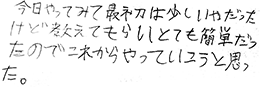 今日やってみて最初は少しいやだった
けど教えてもらいとても簡単だっ
たのでこれからやっていこうと思っ
た。